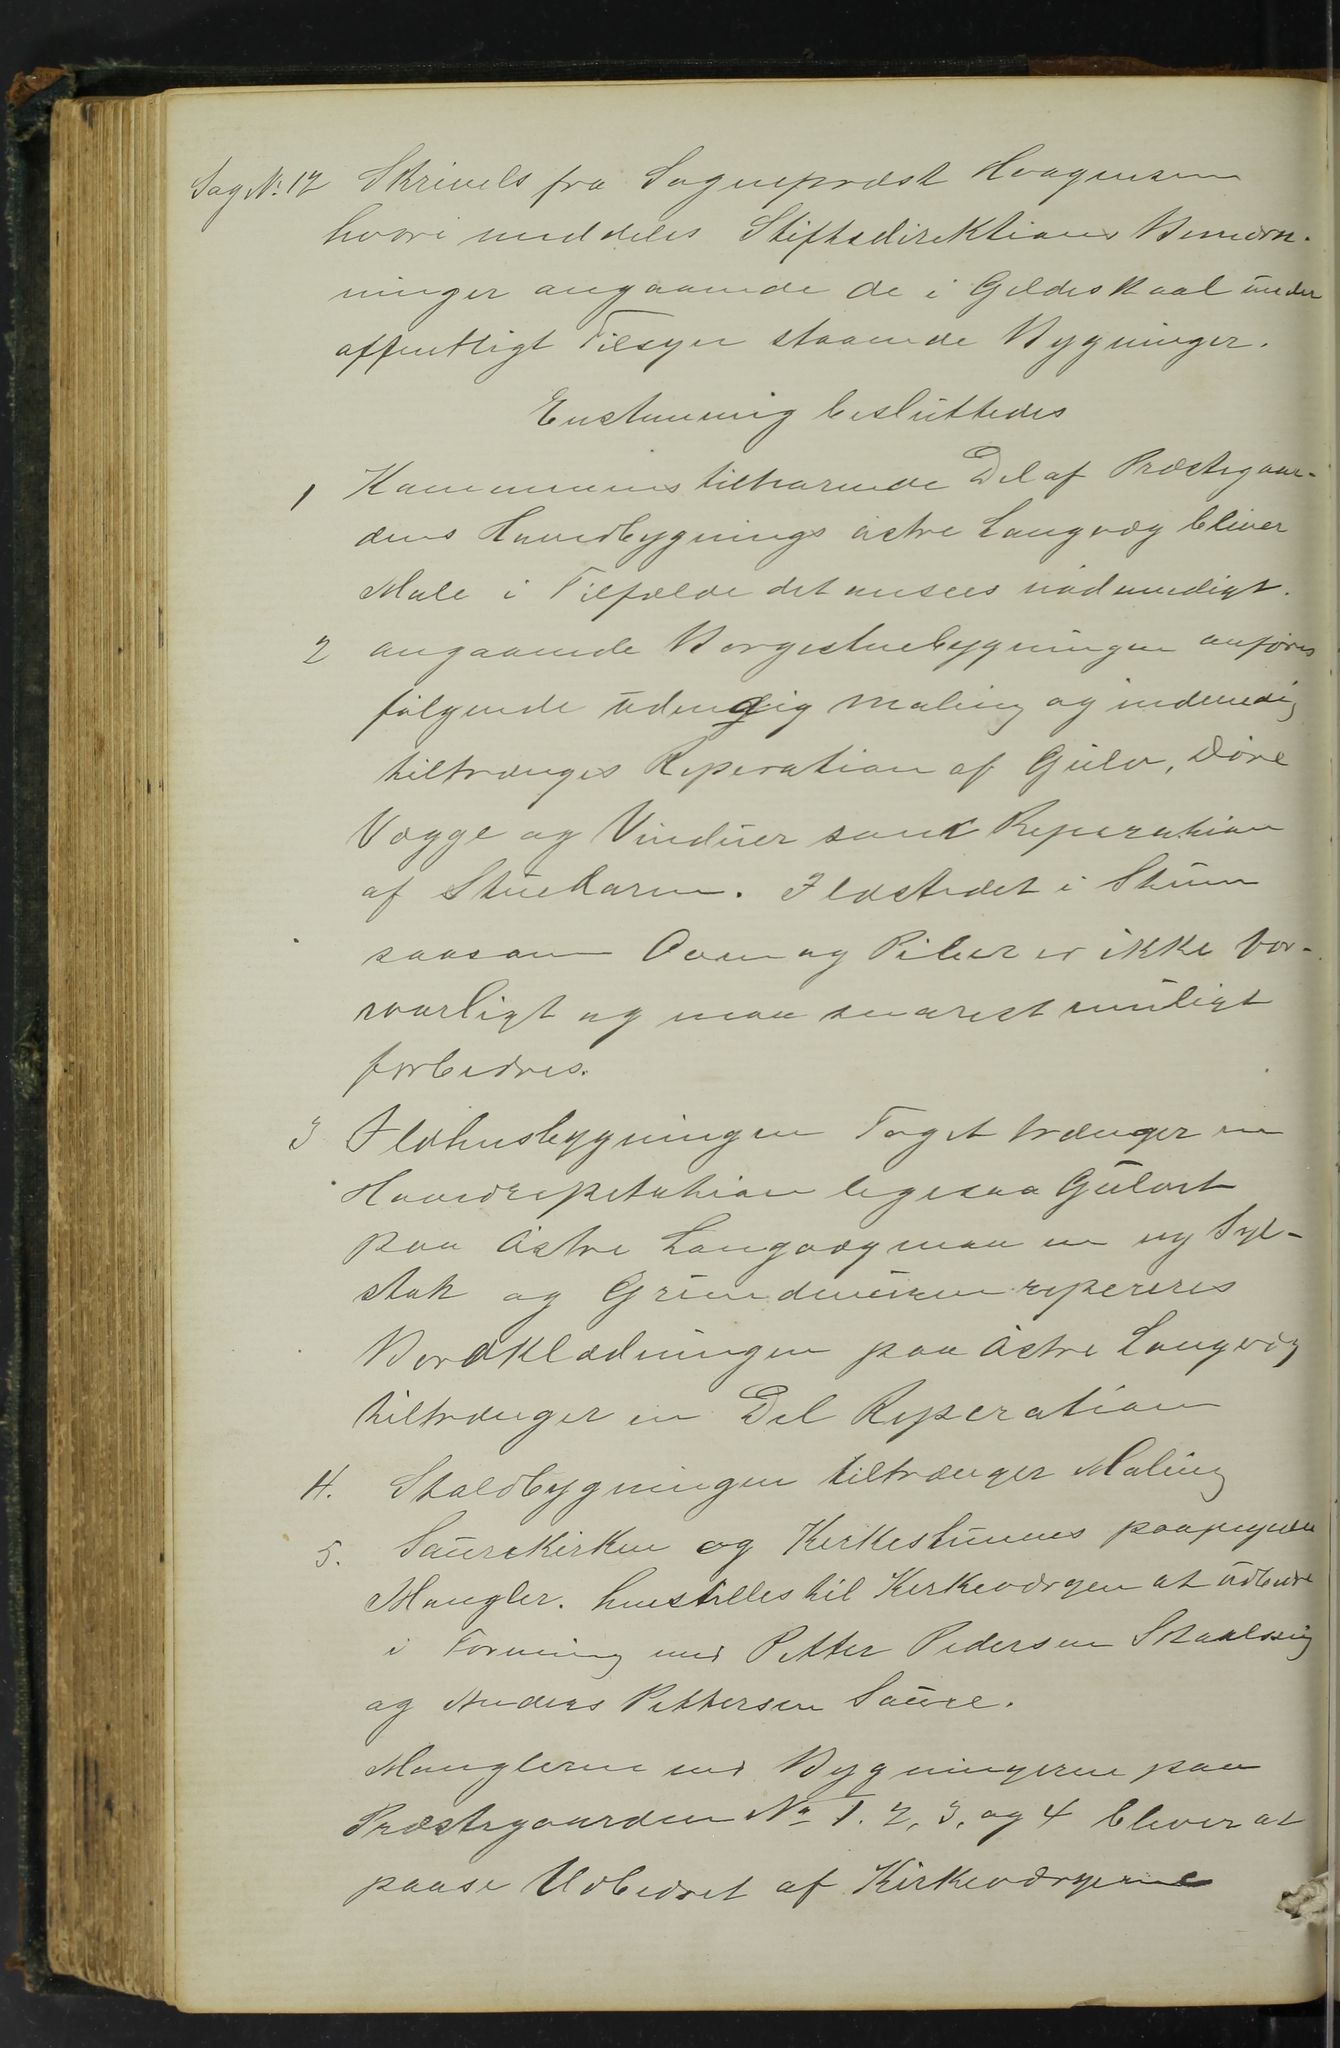 Sag No 12 Skrivels fra Sognepræst Haagensen
hvori meddeles Stiftsdirektions Bemærk-
ninger angaaende de i Gildeskaal under
offentligt Tilsyn staaende Bygninger.
Enstemmig besluttedes
1 Kommunens tilhørende Del af Præstegaar-
dens Hovedbygnings østre Langvæg bliver
Male i Tilfælde det ansees nødvendigt.
2 angaaende Borgestuebygningen anføres
følgende udendig maling og indvendig
tiltrænges Reperation af Gulv, Døre
Vægge og Vinduer samt Reparation
af Skuekarm. Ildstedet i Stuen
saasom Ovn og Piber er ikke for-
svarligt og maa snarest muligt
forbedres.
3 Ildhusbygningen Taget trænger en
Hovedrepetation ligesaa Gulvet
paa østre Langvæg maa en ny Syl-
stok og Grundmuren repereres
Bordklædningen paa østre Langvæg
tiltrænger en Del Reperation
4. Staldbygningen tiltrænger Maling
5. Saurekirken og Kirkestuenes paapegede
Mangler. henstilles til Kirkeværgen at udbedre
i Forening med Petter Pedersen Skaalsvig
og Anders Pettersen Saure.
Manglerne ved Bygningerne paa
Præstegaarden No 1. 2, 3, og 4 bliver at
paase Udbedret af Kirkeværgerne